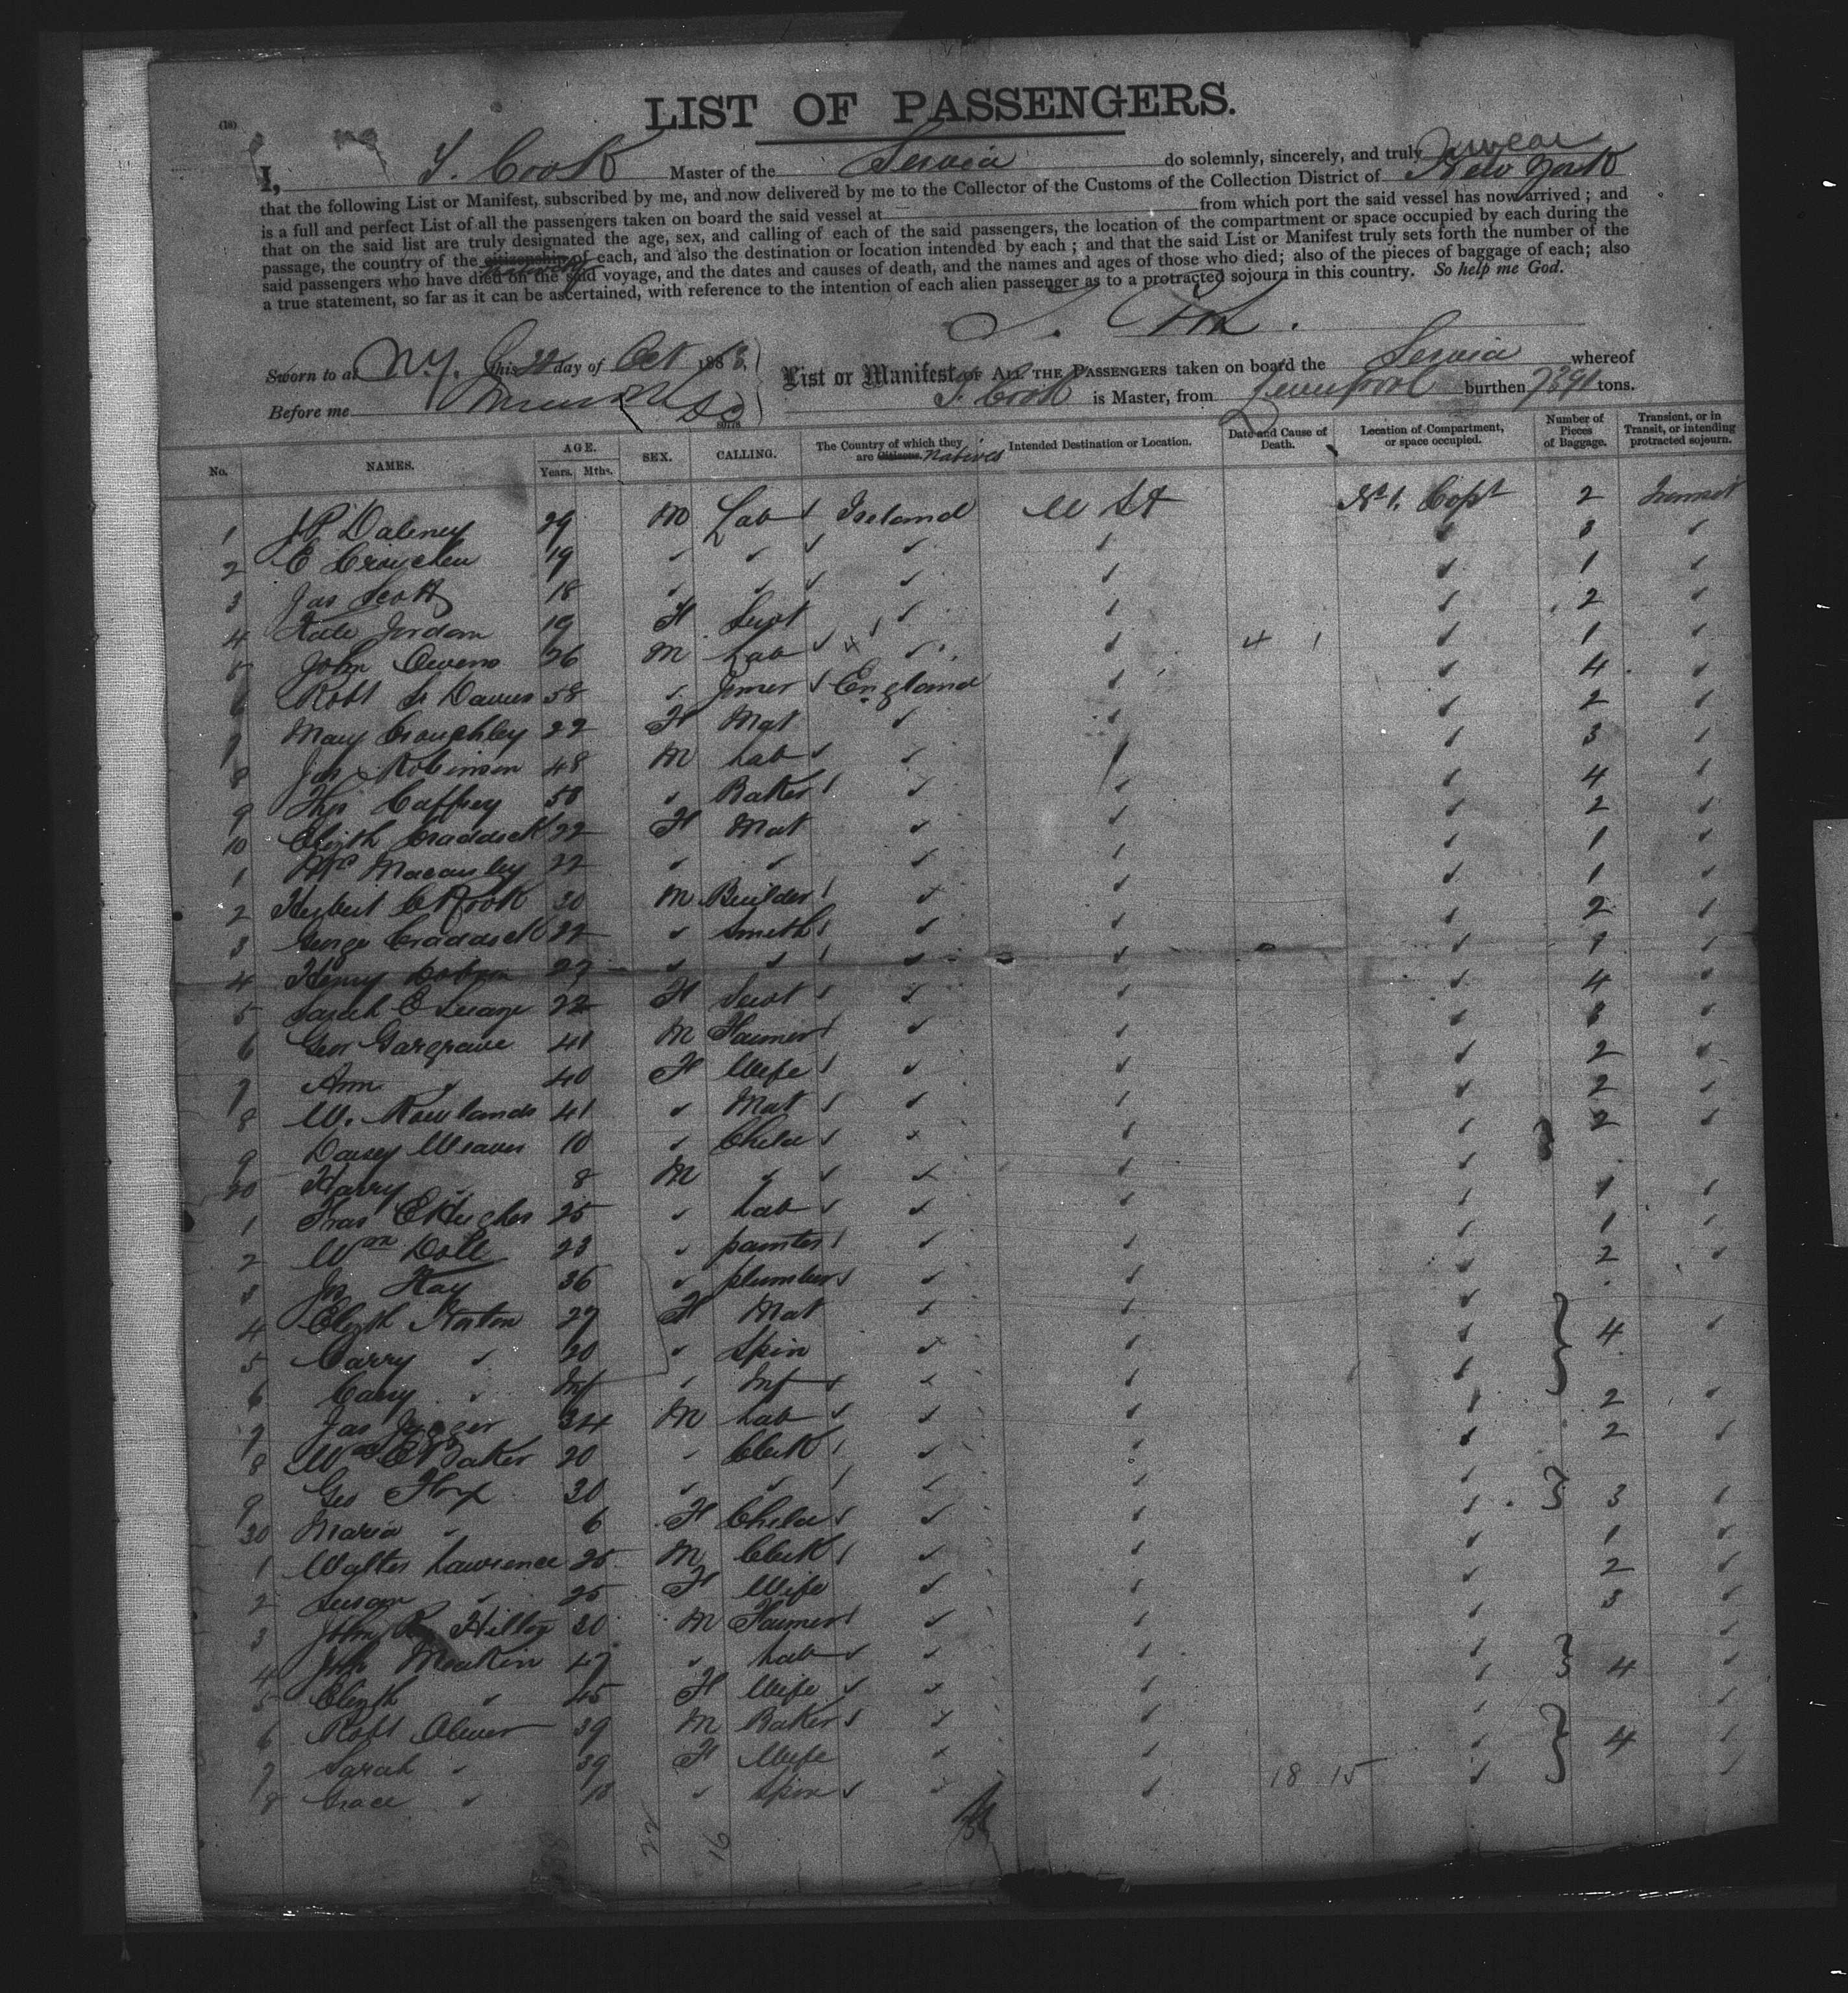 LIST OF PASSENGERS.
I, T. Cook Master of the Servia do solemnly, sincerely, and truly swear
that the following List or Manifest, subscribed by me, and now delivered by me to the Collector of the Customs of the Collection District of New York
is a full and perfect List of all the passengers taken on board the said vessel at from which port the said vessel has now arrived ; and
that on the said list are truly designated the age, sex, and calling of each of the said passengers, the location of the compartment or space occupied by each during the
passage, the country of the citizenship of each, and also the destination or location intended by each ; and that the said List or Manifest truly sets forth the number of the
said passengers who have died on the said voyage, and the dates and causes of death, and the names and ages of those who died; also of the pieces of baggage of each; also
a true statement, so far as it can be ascertained, with reference to the intention of each alien passenger as to a protracted sojourn in this country. So help me God.
T. Cook.
Sworn to at N.Y. this 22 day of Oct 1888
Before me
List or Manifest OF ALL THE PASSENGERS taken on board the Servia whereof
T. Cook is Master, from Liverpool burthen 7391 tons.
No. NAMES. AGE. Years. Mths. SEX. CALLING. The Country of which they are Citizens. Natives Intended Destination or Location. Date and Cause of Death. Location of Compartment, or space occupied. Number of Pieces of Baggage. Transient, or in Transit, or intending protracted sojourn.
1 P. Daleney 29 M Lab Ireland U St No 1. Copt 2 Transit
2 E 19 3
3 Jas Scott 18 1
4 Kate Jordan 19 F Servt 2
5 John Owens 26 M Lab 4 1 1
6 Robt Davies 58 England 4
7 Mary Crouchley 22 F Mat 2
8 Jas Robinson 48 M Lab 3
9 Thos Caffrey 58 Baker 4
10 Elizth Craddock 22 F Mat 2
1 Macauley 22 1
2 Herbert Crook 30 M Builder 1
3 George Craddock 22 Smith 2
4 Henry 27 1
5 Sarah E 22 F Servt 4
6 Geo Gargrave 41 M Farmer 3
7 Ann " 40 F Wife 2
8 W. Rowlands 41 Mat 2
9 Daisey Weaver 10 Child 2
20 Harry " 8 M
1 Fras E Hughes 25 Lab 1
2 Wm Doll 23 painter 1
3 Jn Hay 36 plumber 2
4 Elizth Norton 27 F Mat
5 Carry " 20 Spin 4
6 Carry " Inf Inf
7 Jas 34 M Lab 2
8 Wm E Baker 20 Clerk 2
9 Geo 30
30 Maria " 6 F Child 3
1 Walter Lawrence 25 M Clerk 1
2 Susan " 25 F Wife 2
3 John R Hilton 20 M Farmer 3
4 Jno Meakin 47 Lab
5 Elizth " 45 F Wife 4
6 Robt Oliver 39 M Baker
7 Sarah " 39 F Wife 4
8 Grace " 18 Spin 18 15
22 16